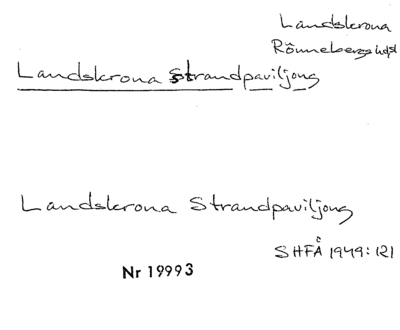 Landskrona
Rönnebergs hd
Landskrona strandpaviljong
Landskrona Strandpaviljong
SHFÅ 1949:121
Nr 19993